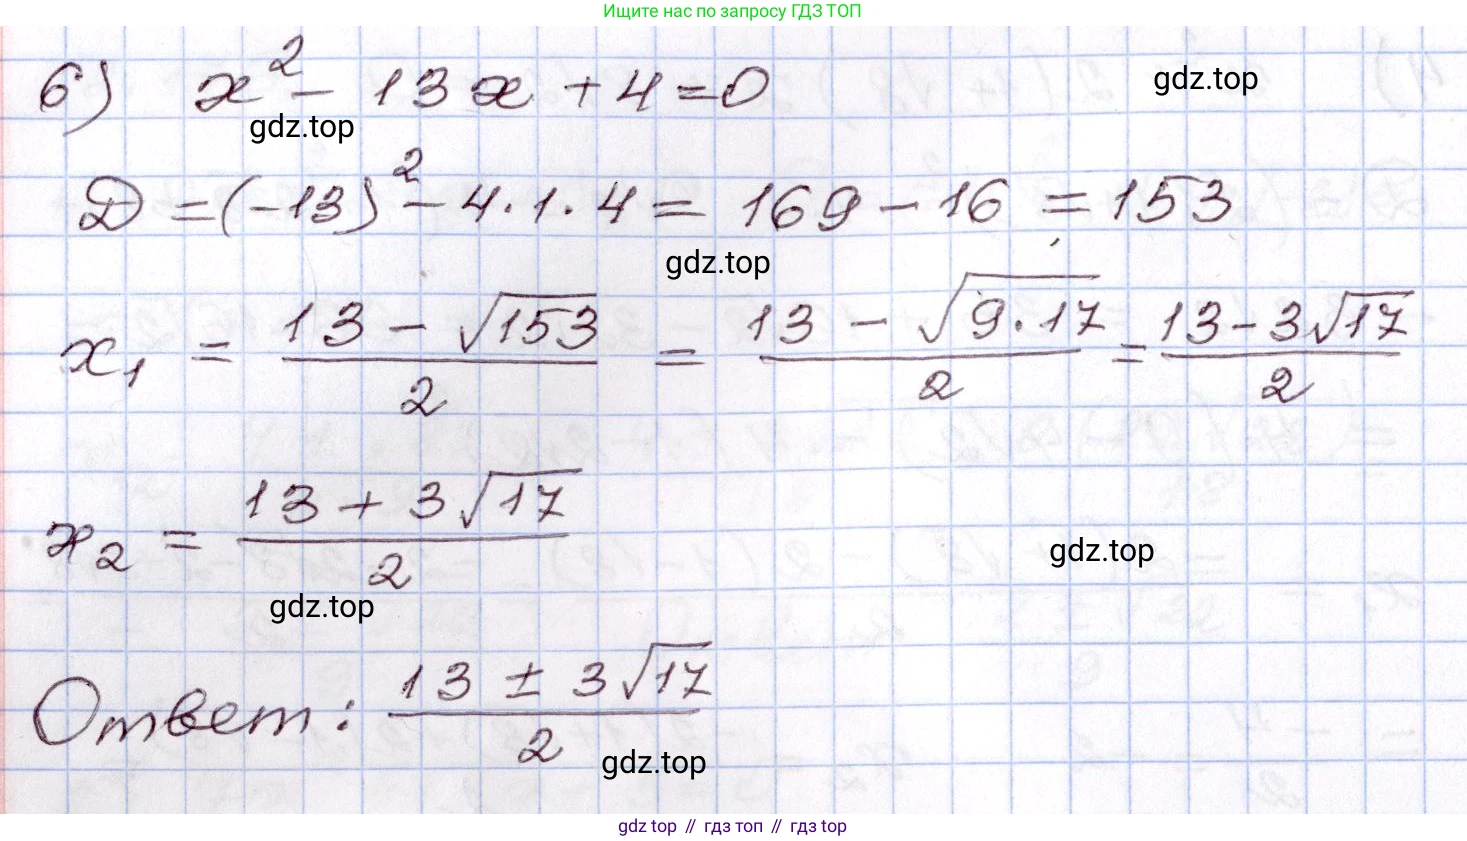 Ищите нас по запросу ГДЗ ТОП
6) x² - 13x + 4 = 0
gdz.top
gdz.top
D = (-13)² - 4·1·4 = 169 - 16 = 153
gdz.top
x₁ = (13 - √153)/2 = (13 - √(9·17))/2 = (13 - 3√17)/2
x₂ = (13 + 3√17)/2
gdz.top
gdz.top
Ответ: (13 ± 3√17)/2
gdz.top
gdz top // гдз топ // гдз top